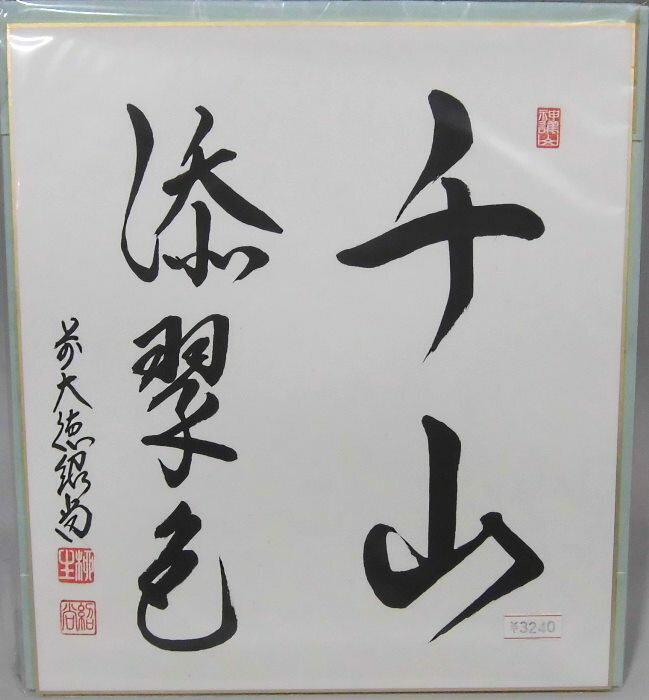 千山
添翠色
前大徳紹尚
¥3240